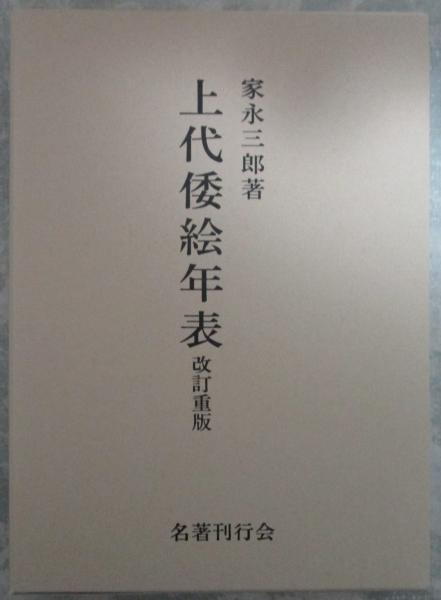 家永三郎著
上代倭絵年表 改訂重版
名著刊行会